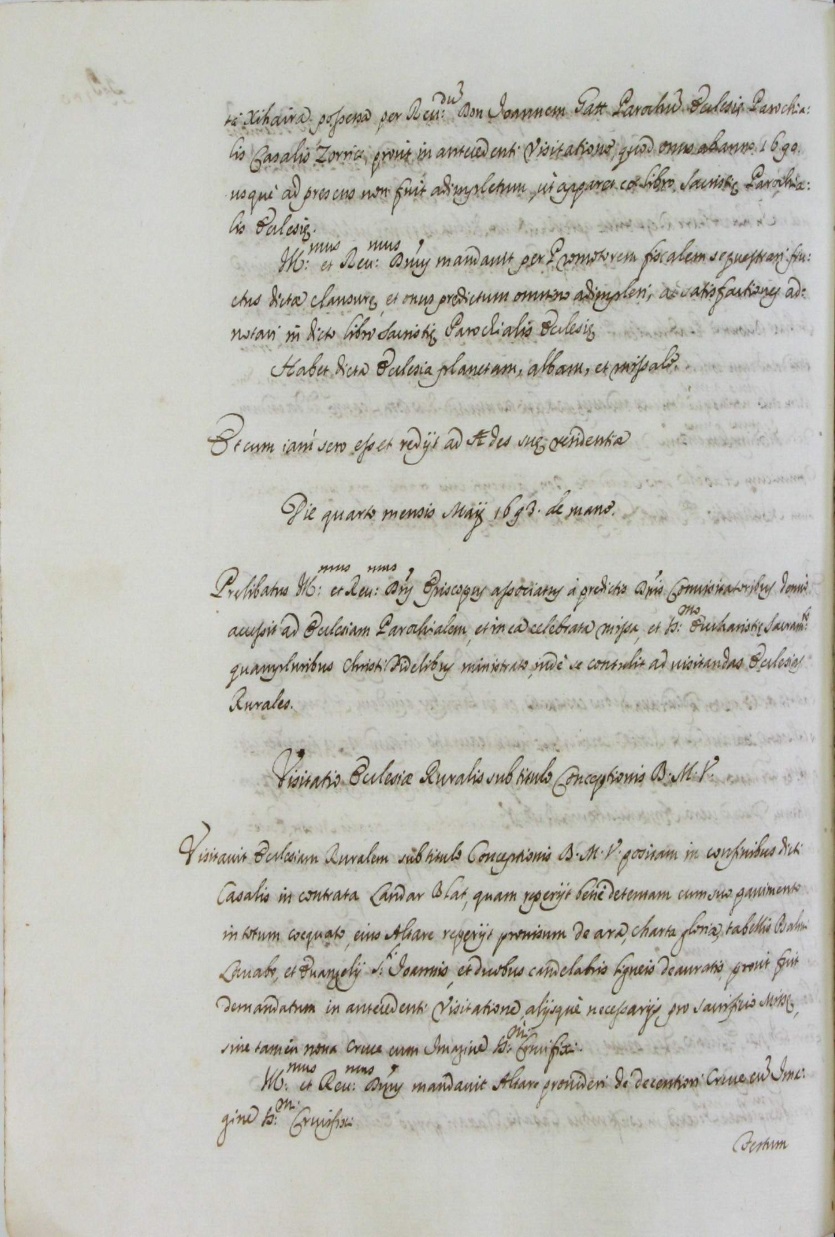 ta Xihaira possessa per Reu:dũ Don Joannem Gatt Parochũ Ecclesię Parochia:
lis Casalis Zorricó, prout in antecedenti Visitatione, quod onus ab anno 1690.
usquè ad presens non fuit adimpletum, ut apparet ex libro Sacristię Parochia:
lis Ecclesię.
Ill:mus et Reu:mus Dñus mandauit per Promotorem fiscalem sequestrari fru:
ctus dictæ clausurę, et onus predictum omnino adimpleri, ac satisfactiones ad:
notari in dicto libro Sacristię Parochialis Ecclesię
Habet dicta Ecclesia planetam, albam, et missale.
Et cum iam sero esset redijt ad Ædes suę residentiæ
Die quarto mensis Maij 1693. de mane.
Prelibatus Ill:mus et Reu:mus Dñs Episcopus associatus à predictis Dñis Conuisitatoribus domi
accessit ad Ecclesiam Parochialem, et in ea celebrata missa, et SS:mo Eucharistię Sacram:to
quampluribus Christi Fidelibus ministrato, indè se contulit ad uisitandas Ecclesias
Rurales.
Visitatio Ecclesiæ Ruralis sub titulo Conceptionis B. M. V.
Visitauit Ecclesiam Ruralem sub titulo Conceptionis B. M. V. positam in confinibus dicti
Casalis in contrataЛандar Blat, quam reperijt benè detentam cum suo pauimento
in totum coequato, eius Altare reperijt prouisum de ara, charta gloriæ, tabellis Psalmi
Lauabo, et Euangelij S:ti Joannis, et duobus candelabris ligneis deauratis, prout fuit
demandatum in antecedenti Visitatione, alijsquè necessarijs pro sacrificio Missę,
sine tamen noua Cruce cum Imagine SS:mi Crucifixi.
Ill:mus et Reu:mus Dñus mandauit Altare prouideri de decentiori Cruce cũ Ima:
gine SS:mi Crucifixi
Testum